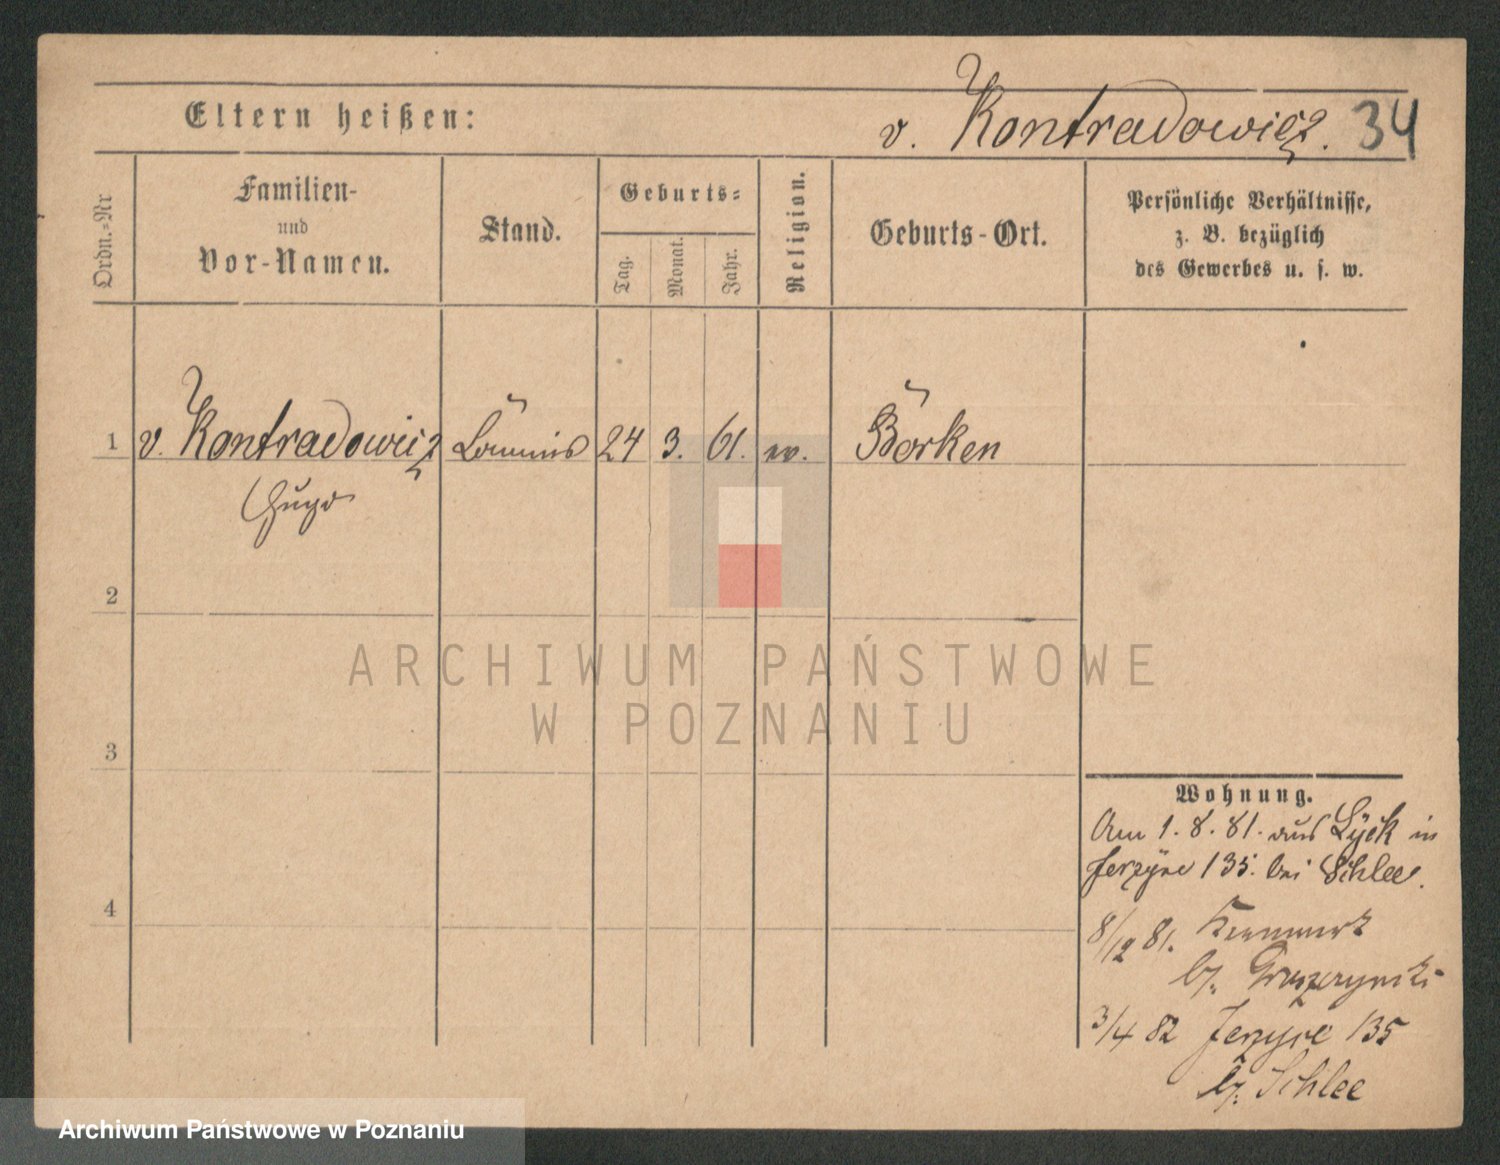 Eltern heißen:
v. Kontradowicz. 34
Ordn.-Nr
Familien-
und
Vor-Namen.
Stand.
Geburts-
Tag.
Monat.
Jahr.
Religion.
Geburts-Ort.
Persönliche Verhältnisse,
z. B. bezüglich
des Gewerbes u. s. w.
1 v. Kontradowicz Commis 24 3. 61. ev. Borken
Hugo
2
3
4
Wohnung.
Am 1. 8. 81. aus Lyck in
Jerzyce 135. bei Schlee.
8/12 81.
bj.
3/4 82 Jerzyce 135
bj. Schlee
ARCHIWUM PAŃSTWOWE
W POZNANIU
Archiwum Państwowe w Poznaniu